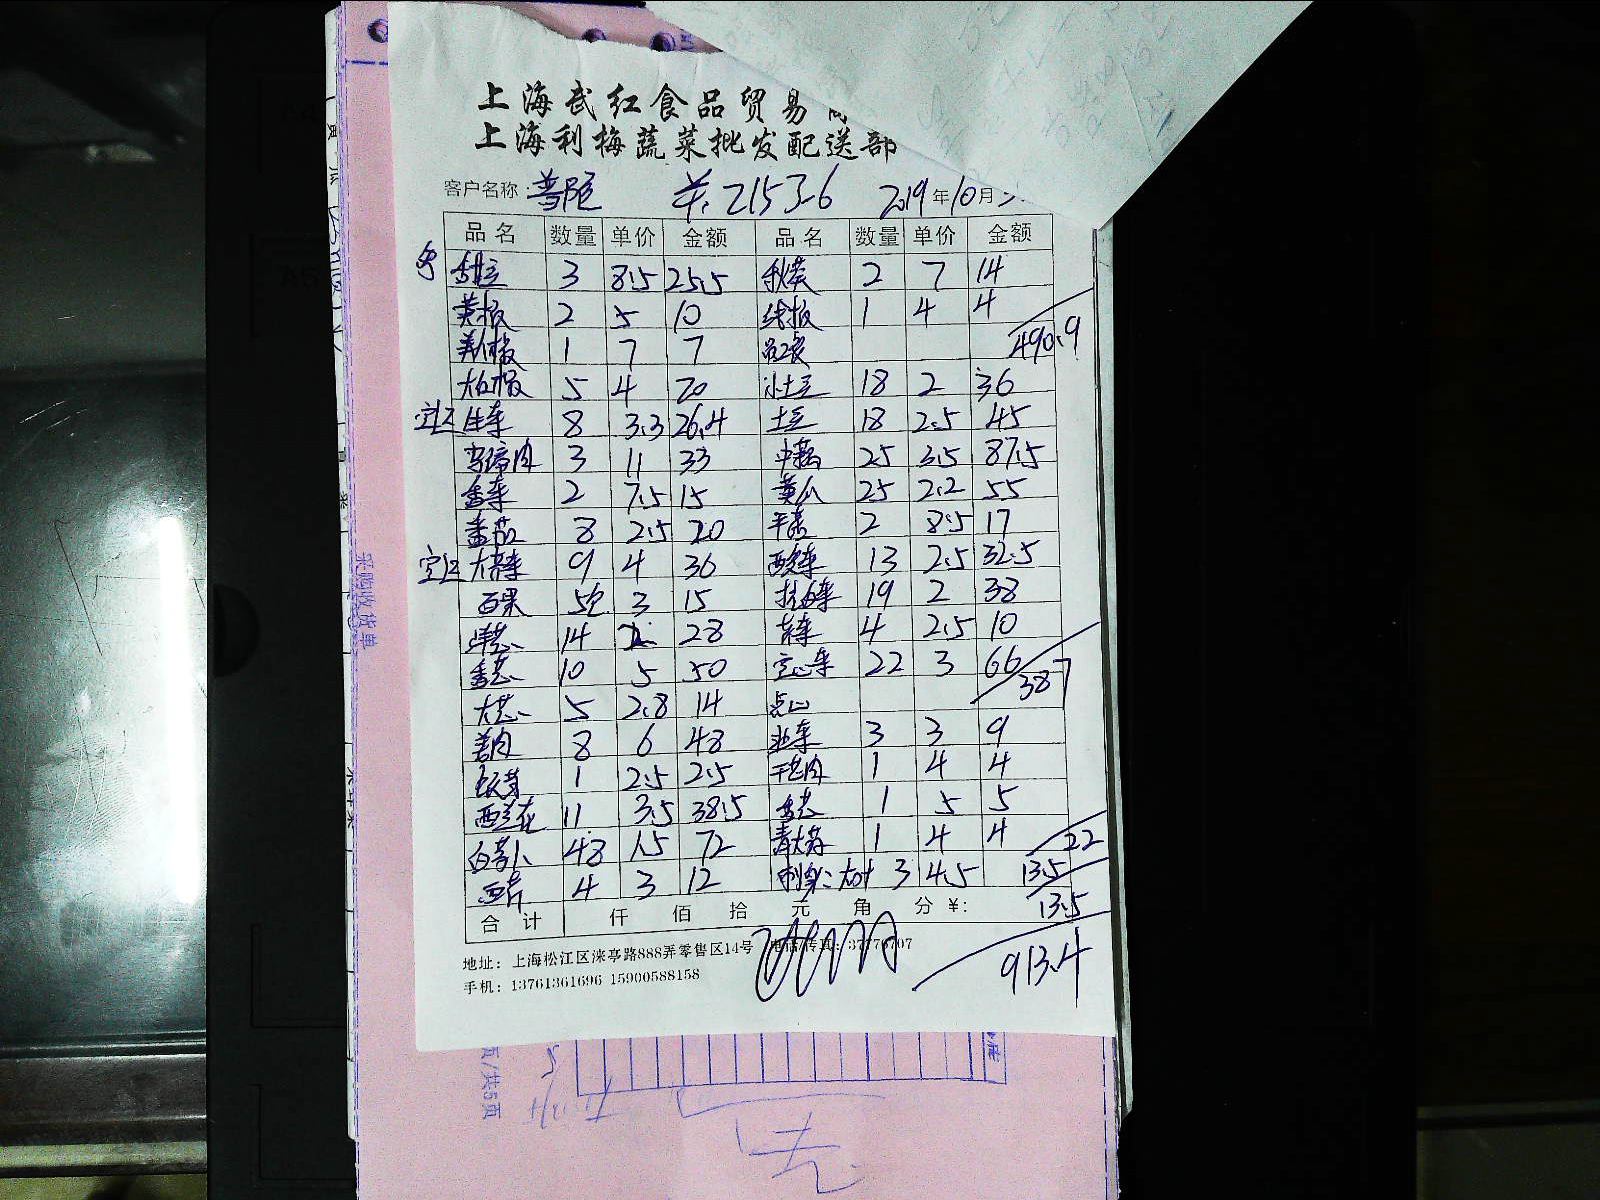 上海武红食品贸易
上海利梅蔬菜批发配送部
客户名称: 普陀 羊:2153.6 2019年10月
品名 数量 单价 金额 品名 数量 单价 金额
3 8.5 25.5 秋葵 2 7 14
美椒 2 5 10 线椒 1 4 4
1 7 7 490.9
5 4 20 小土豆 18 2 36
生菜 8 3.3 26.4 土豆 18 2.5 45
马蹄肉 3 11 33 中藕 25 3.5 87.5
香菜 2 7.5 15 黄瓜 25 2.2 55
番茄 8 2.5 20 平菇 2 8.5 17
9 4 36 酸菜 13 2.5 32.5
百果 5包 3 15 19 2 38
洋葱 14 2 28 4 2.5 10
香葱 10 5 50 空心菜 22 3 66
387
大葱 5 2.8 14 点心
姜肉 8 6 48 3 3 9
银芽 1 2.5 2.5 1 4 4
西兰花 11 3.5 38.5 1 5 5
白萝卜 48 1.5 72 1 4 4
22
西芹 4 3 12 刺身: 大叶 3 4.5 13.5
13.5
合计 仟 佰 拾 元 角 分 ¥:
913.4
地址: 上海松江区涞亭路888弄零售区14号 电话/传真: 37776707
手机: 13761361696 15900588158
采购收货单
页/共5页